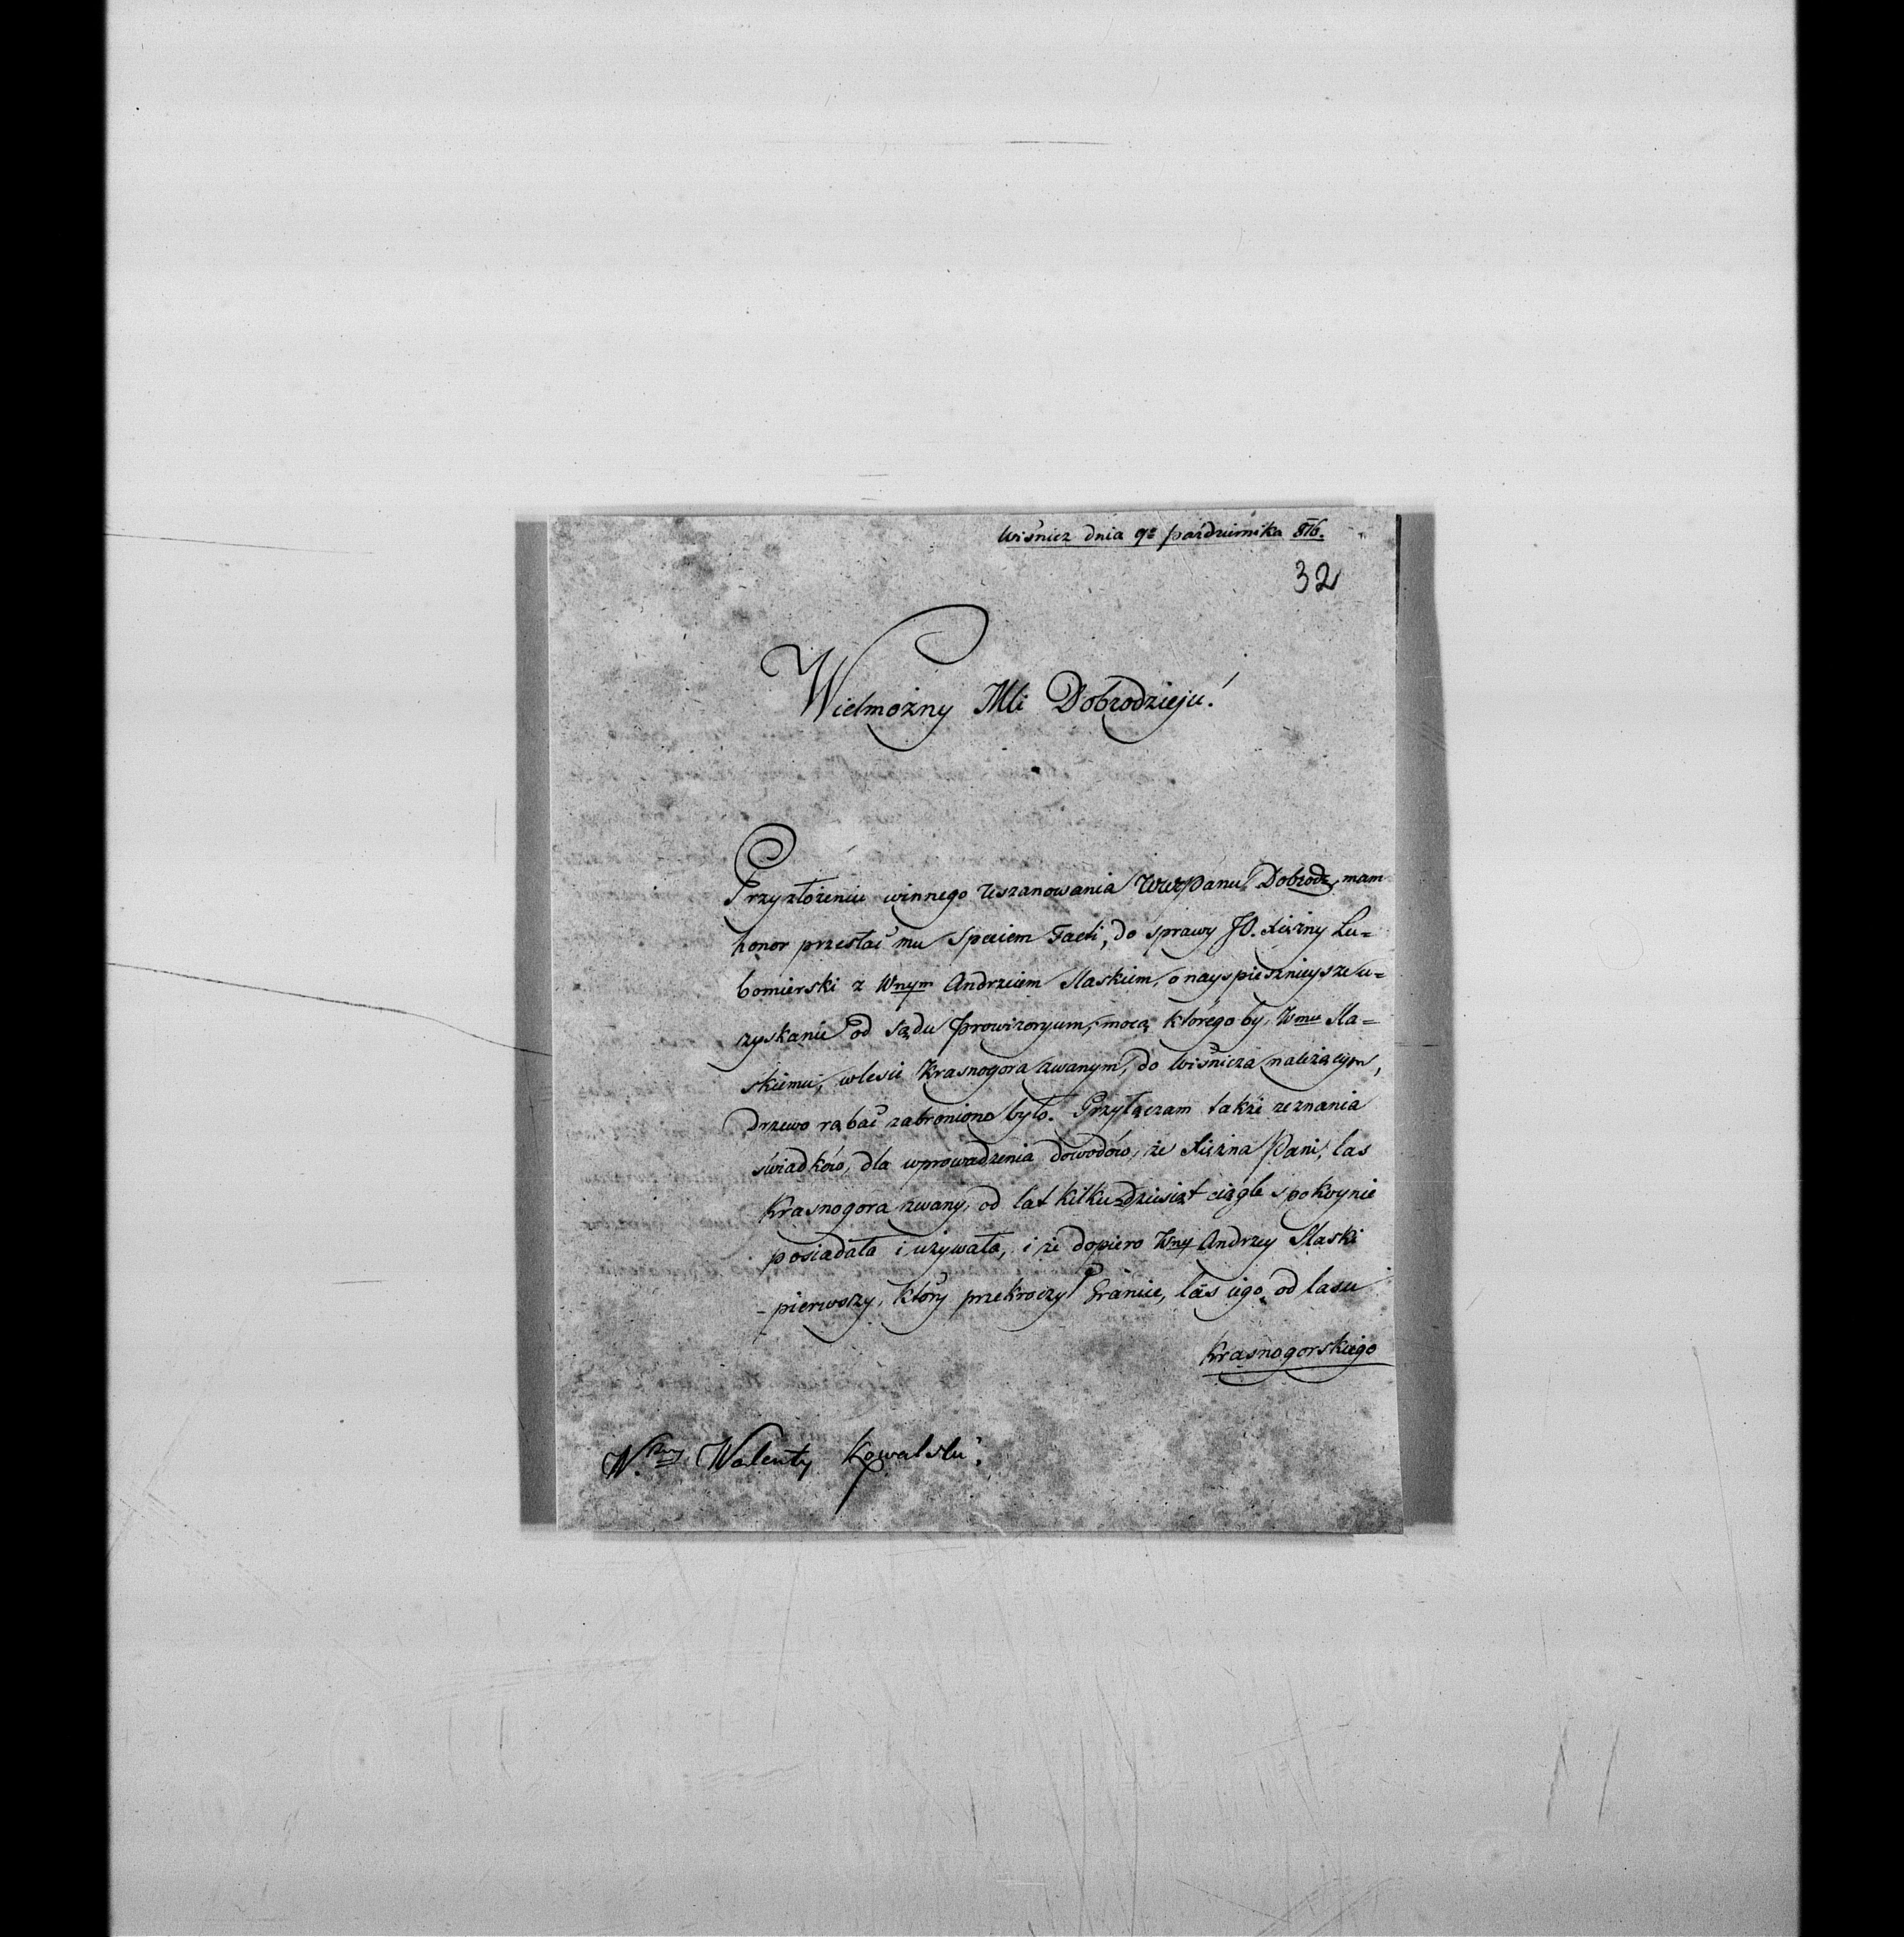 Wiśnicz dnia 9º października 816.
32
Wielmożny Mci Dobrodzieju!
Przyzłożeniu winnego Uszanowania WWPanu Dobrodz, mam
honor przesłać mu Speciem Facti, do sprawy JO. Xiężny Lu=
bomierski z Wnym Andrzeiem Slaskiem, o nayspiesznieysze u=
zyskanie od Sądu Prowizoryum, mocą którego by, Wmu Sla=
skiemu, wlesie Krasnogora zwanym, do Wiśnicza należącym,
drzewo rąbać zabroniono było. Przyłączam także zeznania
świadków, dla wprowadzenia dowodów, że Xiężna Pani, las
Krasnogora zwany, od lat kilkudziesiąt ciągle spokoynie
posiadała i używała, i że dopiero Wny Andrzey Slaski
- pierwszy, który przekroczył Granice, las iego, od lasu
Krasnogorskiego
W.ny Walenty Kowalski.